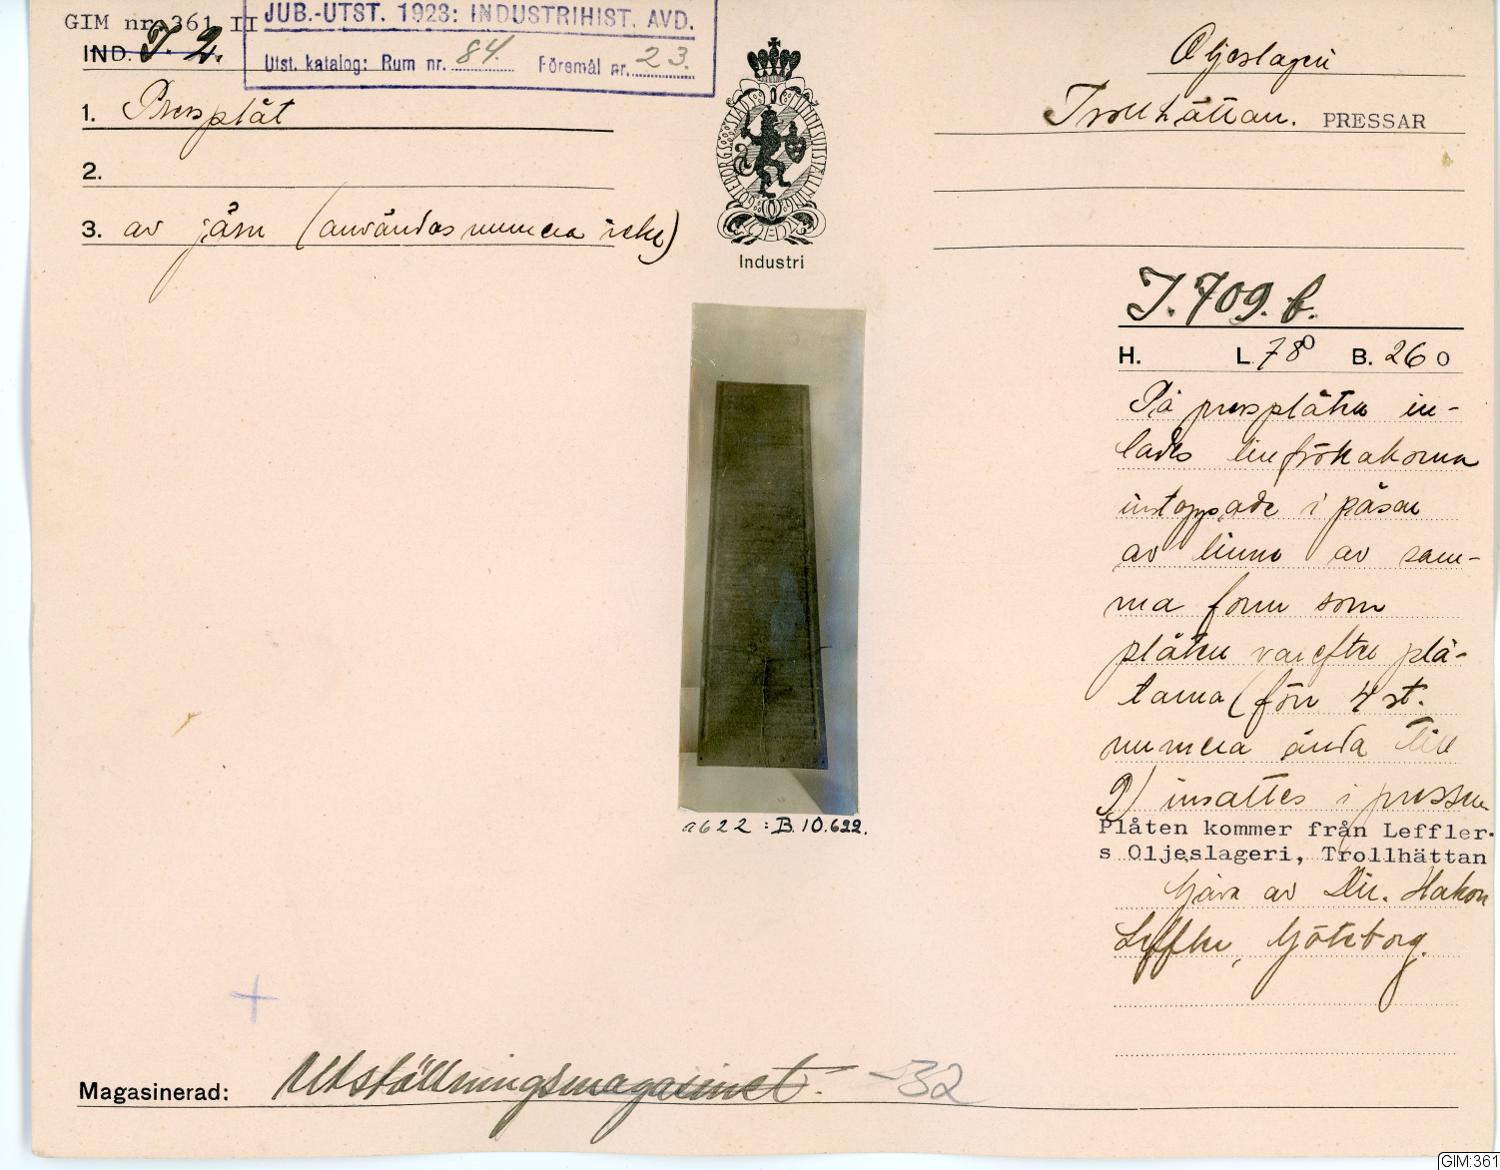 GIM nr 361 II
IND. I 2.
JUB.-UTST. 1923: INDUSTRIHIST. AVD.
Utst. katalog: Rum nr. 84. Föremål nr. 23.
1. Pressplåt
2.
3. av järn (användas numera icke)
GÖTEBORGS STADS JUBILEUMSUTSTÄLLNING
Industri
Oljeslageri
Trollhättan. PRESSAR
I.709.b.
H. L. 780 B. 260
På pressplåten in-
lades linfrökakorna
instoppade i påsar
av linne av sam-
ma form som
plåten varefter plå-
tarna (förr 4 st.
numera ända till
9) insattes i pressen
Plåten kommer från Leffler-
s Oljeslageri, Trollhättan
Gåva av Dir. Hakon
Leffler, Göteborg.
a622 : B.10.622.
Magasinerad: Utställningsmagasinet. -32
GIM:361